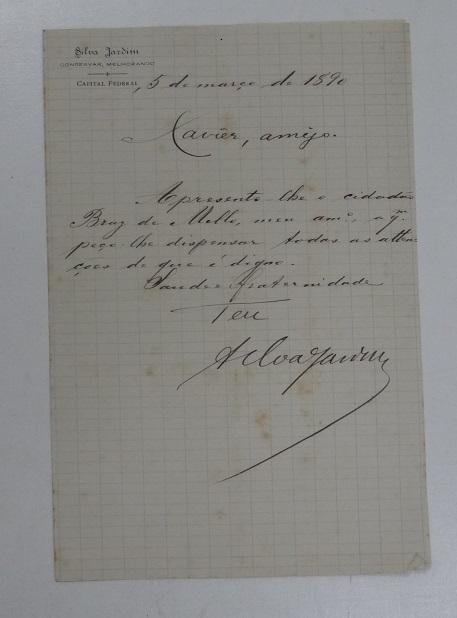 Silva Jardim
CONSERVAR, MELHORANDO
CAPITAL FEDERAL, 5 de março de 1890
Xavier, amigo.
Apresento-lhe o cidadão
Braz de Mello, meu amº, a qm
peço-lhe dispensar todas as atten-
ções de que é digno.
Saude e fraternidade
Teu
Silva Jardim